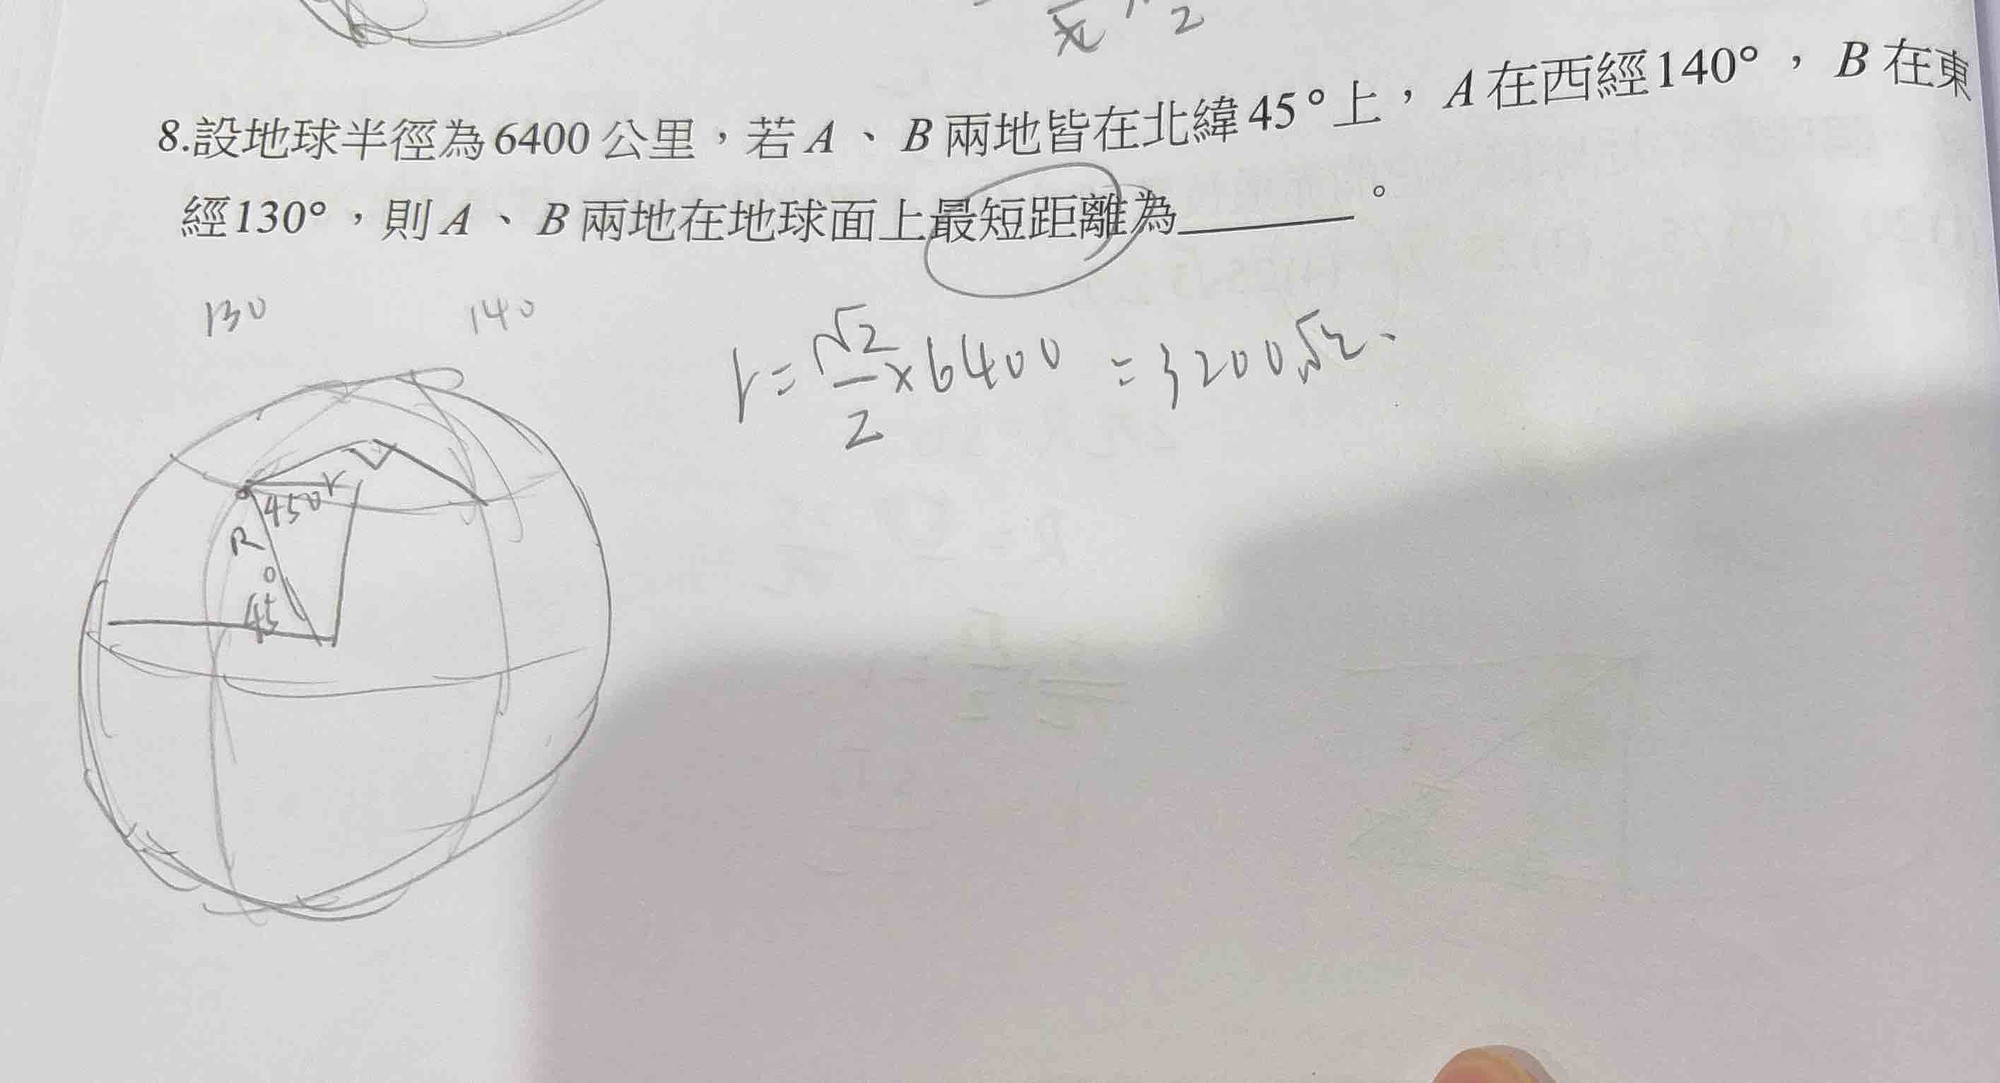 2
8.設地球半徑為6400公里，若A、B兩地皆在北緯45°上，A在西經140°，B在東
經130°，則A、B兩地在地球面上最短距離為______。
130 140
r=√2/2×6400=3200√2.
45° r
R
45°